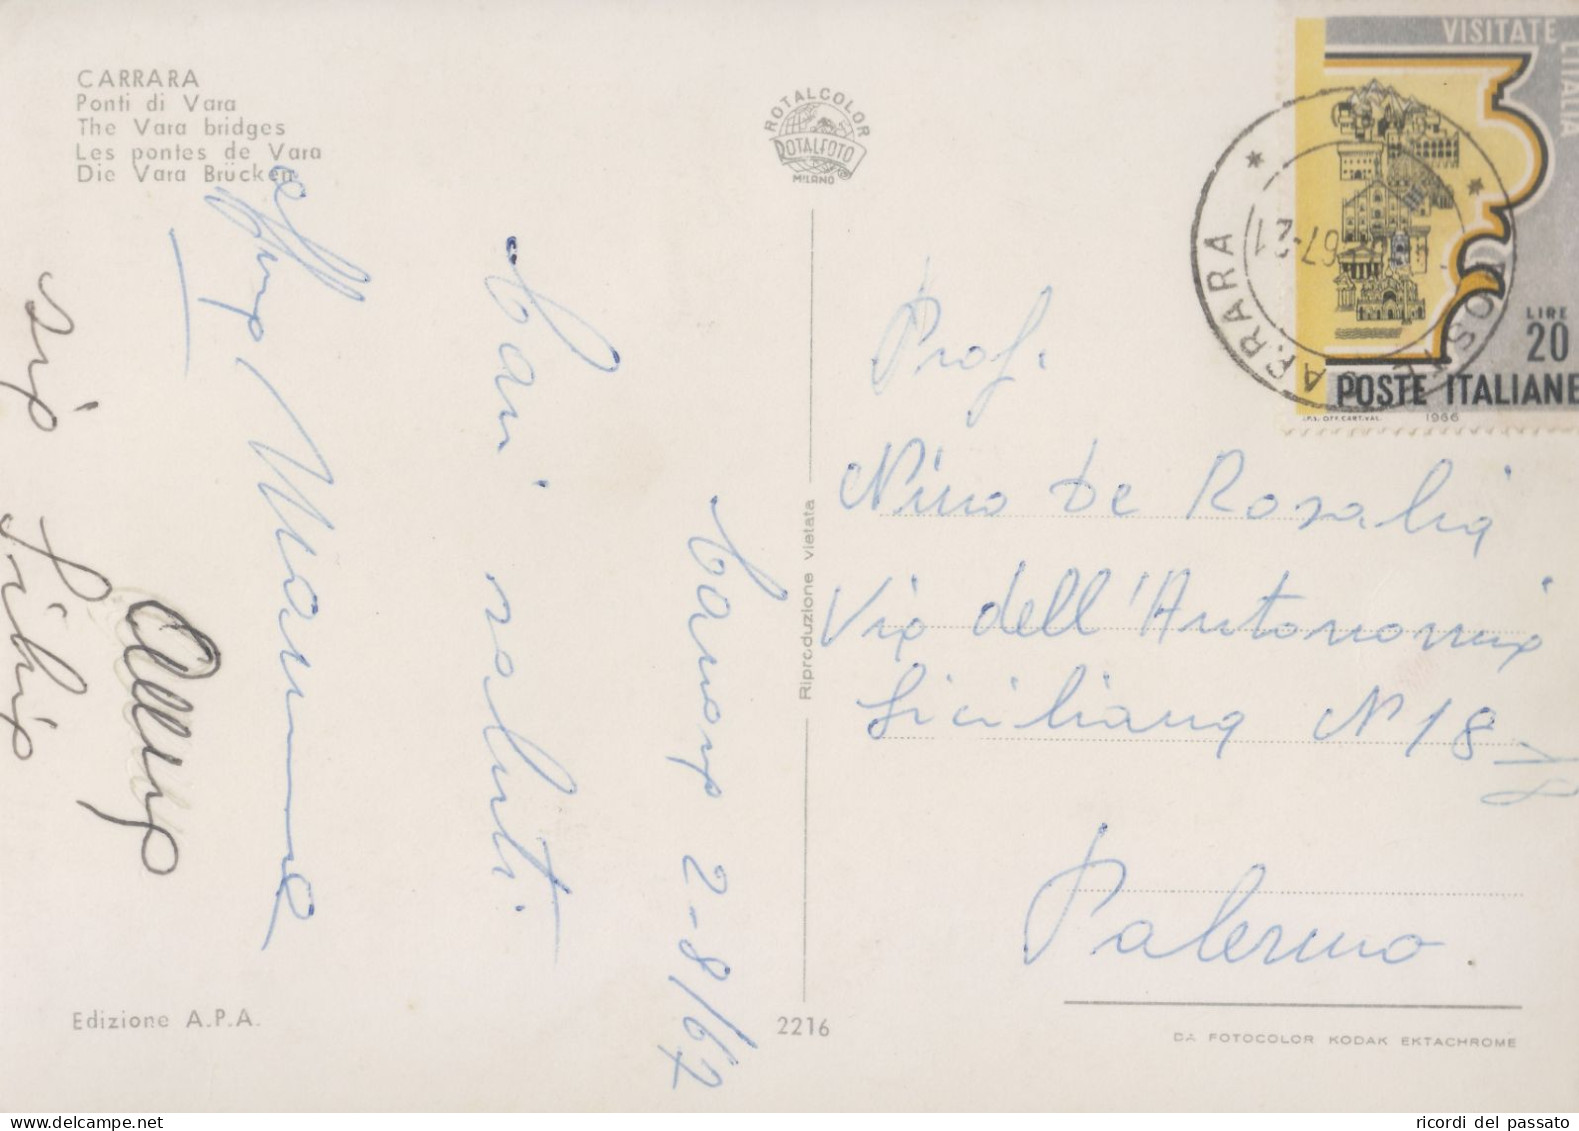 CARRARA
Ponti di Vara
The Vara bridges
Les pontes de Vara
Die Vara Brücken
ROTALCOLOR
ROTALFOTO
MILANO
VISITATE
L'ITALIA
LIRE
20
POSTE ITALIANE
I.P.S. OFF. CART. VAL.
1966
CARRARA
67-21
Carrara 2-8/67
Cari saluti
Prof.
Nino De Rosalia
Via dell'Autonomia
Siciliana N 18
18
Palermo.
Riproduzione vietata
Edizione A.P.A.
2216
DA FOTOCOLOR KODAK EKTACHROME
ricordi del passato